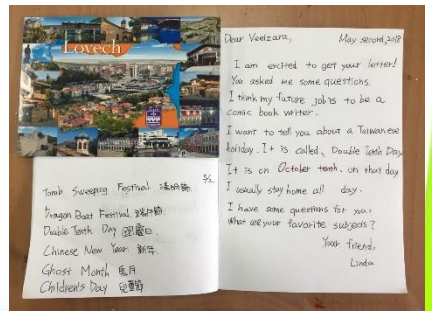 Lovech
5/2
Tomb Sweeping Festival 清明節
Dragon Boat Festival 端午節
Double Tenth Day 國慶日
Chinese New Year 新年
Ghost Month 鬼月
Children's Day 兒童節
Dear Veelzara,
May second, 2018
I am excited to get your letter!
You asked me some questions.
I think my future job is to be a
comic book writer.
I want to tell you about a Taiwanese
holiday. It is called, Double Tenth Day
It is on October tenth. on that day
I usually stay home all day.
I have some questions for you.
What are your favorite subjects?
Your friend,
Linda